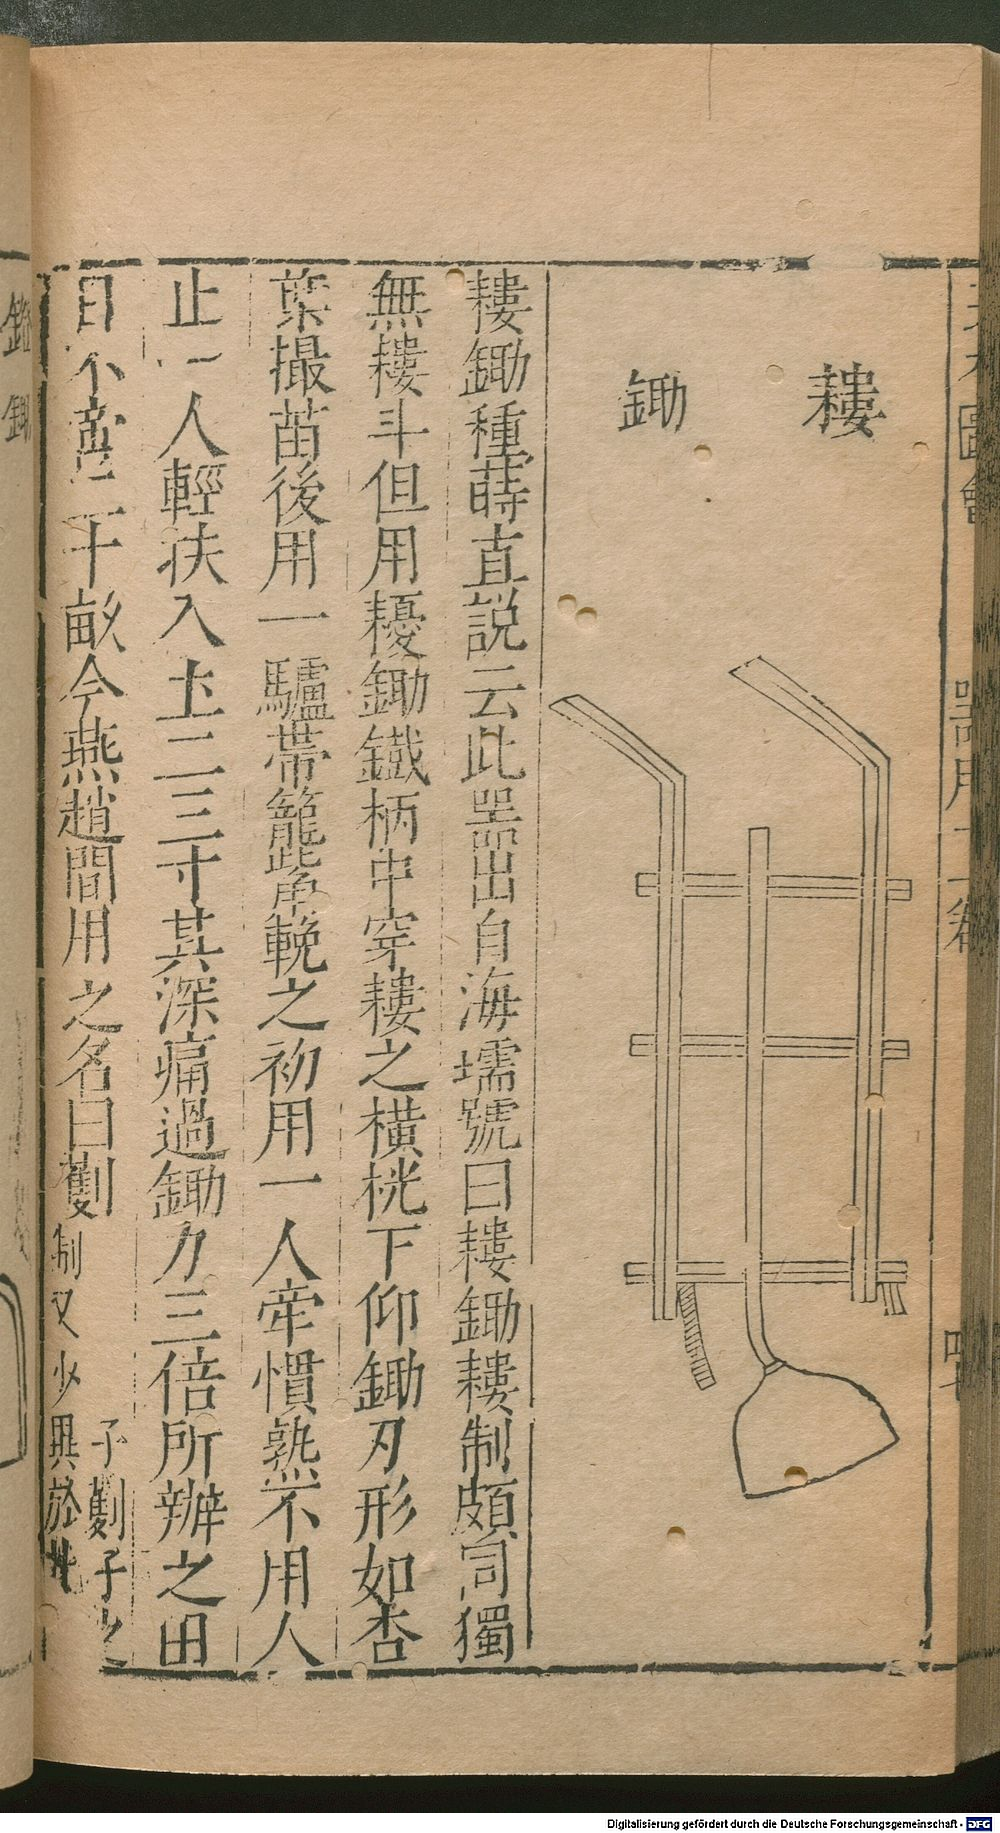 耬鋤
耬鋤種蒔直説云此器出自海壖號曰耬鋤耬制頗同獨
無耬斗但用耰鋤鐵柄中穿耬之橫桄下仰鋤刃形如杏
葉撮苗後用一驢帶籠觜輓之初用一人牽慣熟不用人
止一人輕扶入土二三寸其深痛過鋤力三倍所辦之田
日不啻二十畝今燕趙間用之名曰劐
子劐子之
制又少異於此
圖會
器用十二卷
鋤
Digitalisierung gefördert durch die Deutsche Forschungsgemeinschaft - DFG